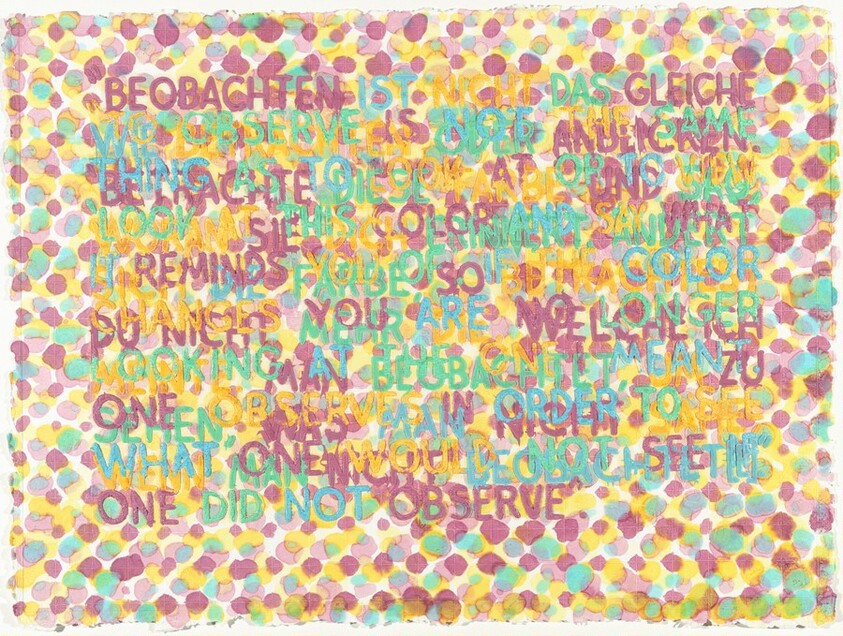 "BEOBACHTEN IST NICHT DAS GLEICHE
OBSERVE IS NOT THE SAME
WIE ODER ANBLICKEN.
THING AS TO LOOK AT OR TO VIEW
BETRACHTE DIESE FARBE UND SAG,
'LOOK AT THIS COLOR AND SAY WHAT
SIE DICH ERINNERT. ÄNDERT
IT REMINDS YOU OF. IF THE COLOR
DIE FARBE, SO
CHANGES YOU ARE NO LONGER
DU NICHT MEHR DIE WELCHE ICH
LOOKING AT THE ONE I MEANT
MAN BEOBACHTET, ZU
ONE OBSERVES IN ORDER TO SEE
SEHEN, WAS MAN NICHT
WHAT ONE WOULD NOT SEE IF
MAN NICHT BEOBACHTET"
ONE DID NOT OBSERVE